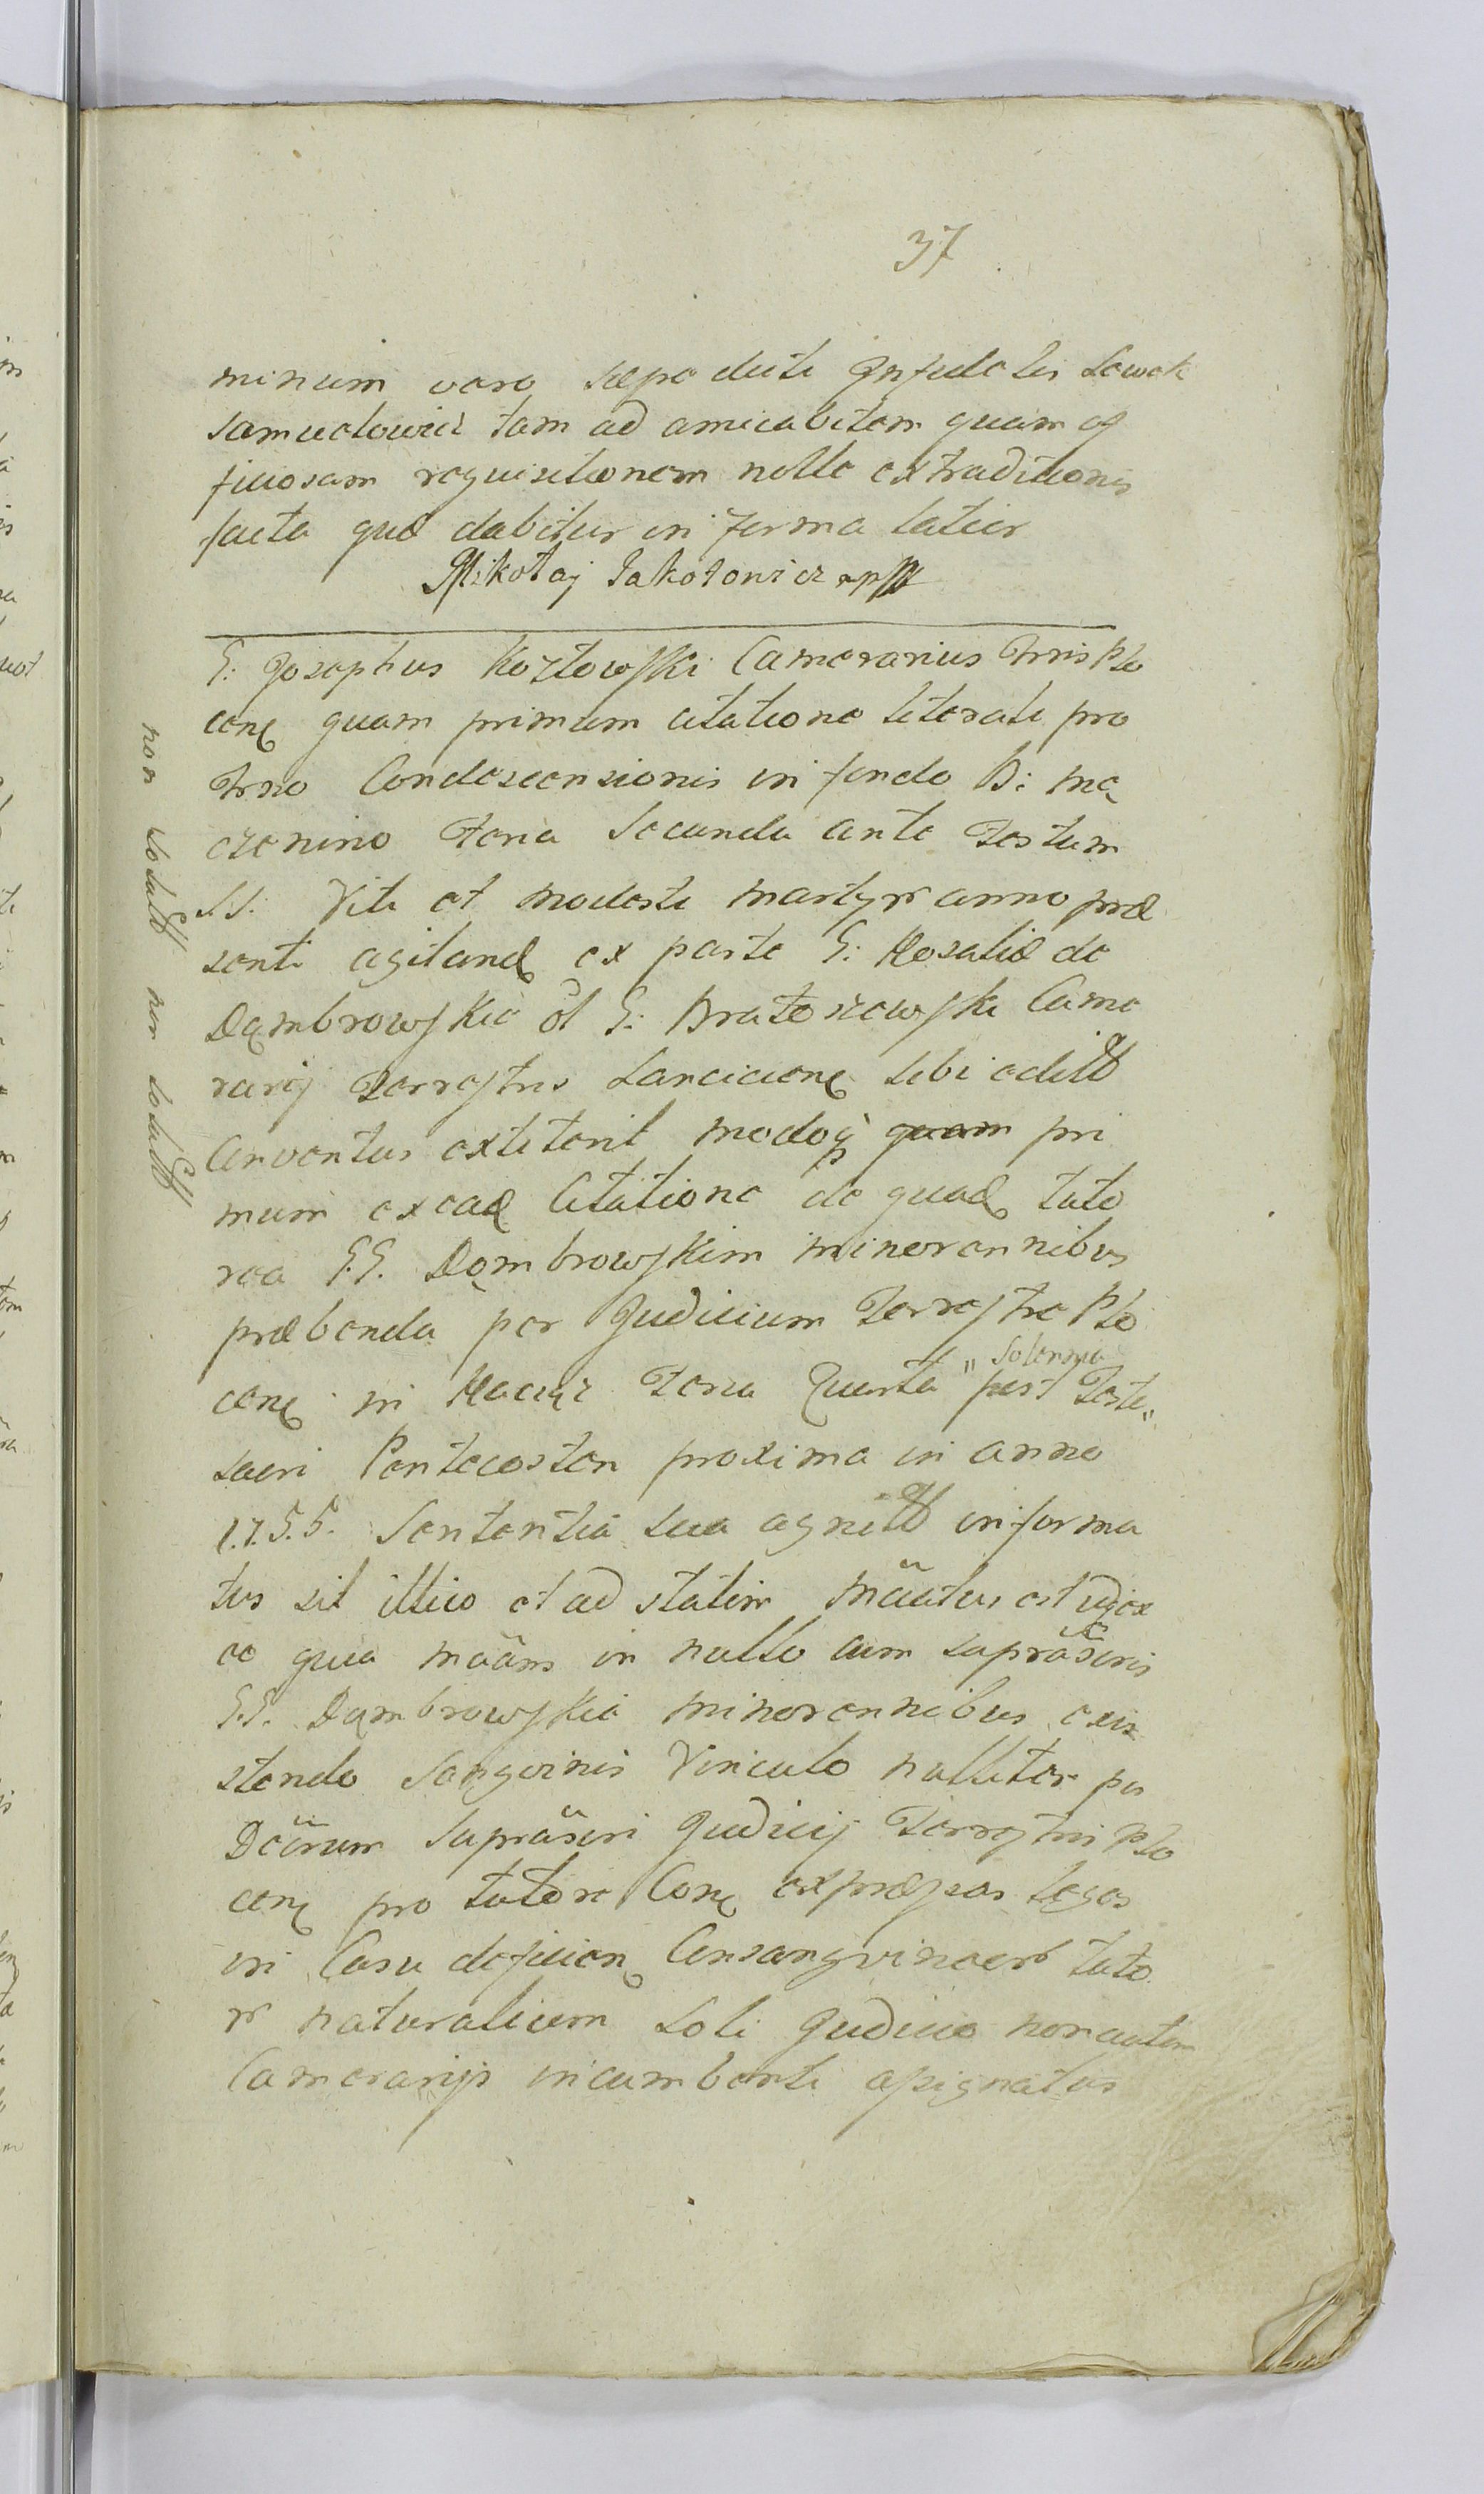 37
minum vero sæpe dicti Infidelis Lewek
Samuelowicz tam ad amicabilem quam of
ficiosam requisitionem nolle extraditionis
facta quæ dabitur in forma latior
Mikołaj Jakołowicz mp
G: Josephus Kozłowski Camerarius Trris Plo
cen quam primum citatione literali pro
Trno Condescensionis in fundo B: Mą
czenino Feria Secunda ante Festum
S.S. Viti et Modesti Martyr anno præ
senti agitand ex parte G: Rosaliæ de
Dąmbrowskie G: Bratoszewski Came
rarij Terrestris Lancicien sibi edit
Conventus extiterit modoq quam pri
mum ex ead Citatione de quad tuto
rea G.G. Dąmbrowskim minorennibus
præbenda per Judicium Terrestre Plo
cen in Raciąż Feria Quarta " post Festa "
Solenna
sacri Pentecosten proxima in anno
1.7.5.5. Sententia sua agnit informa
tus sit illico et ad statim määtus est
eo quia määns in nullo cum supräscris
G.G. Dąmbrowskie minorennibus exis
stendo Sangvinis Vinculo nulliter per
Dëcrum supräscri Judicij Terrestris Plo
cen pro tutore Con expressas leges
in Casu deficien Consangvineor tuto
r naturalium soli Judicio non autem
Camerarijs incumbenti assignatus
non
non